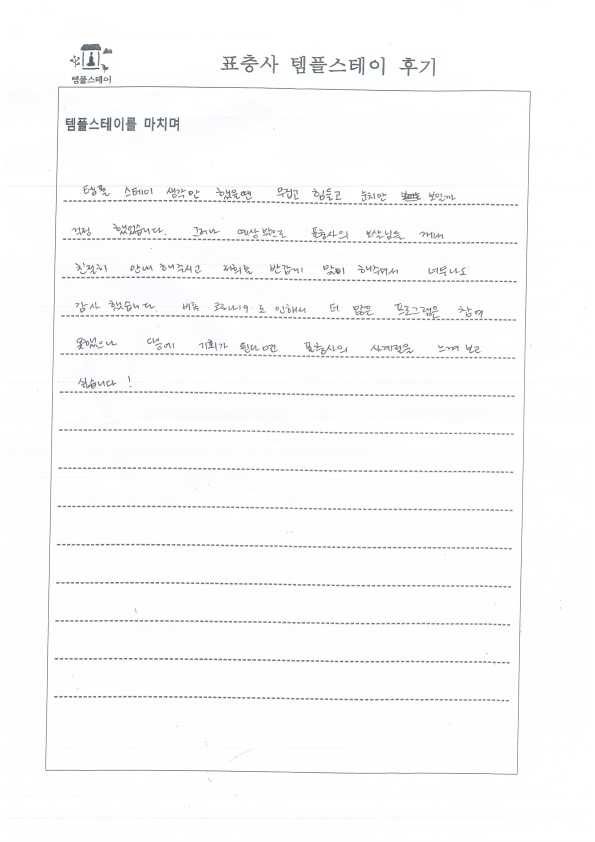 템플스테이
표충사 템플스테이 후기
템플스테이를 마치며
템플 스테이 생각만 했을땐 무겁고 힘들고 눈치만 보일까
걱정 했었습니다. 그러나 예상 밖으로 표충사의 보살님들 께서
친절히 안내 해주시고 저희를 반갑게 맞이 해주셔서 너무나도
감사 했습니다. 비록 코로나19 로 인해서 더 많은 프로그램은 참여
못했으나 다음에 기회가 된다면 표충사의 사계절을 느껴 보고
싶습니다!